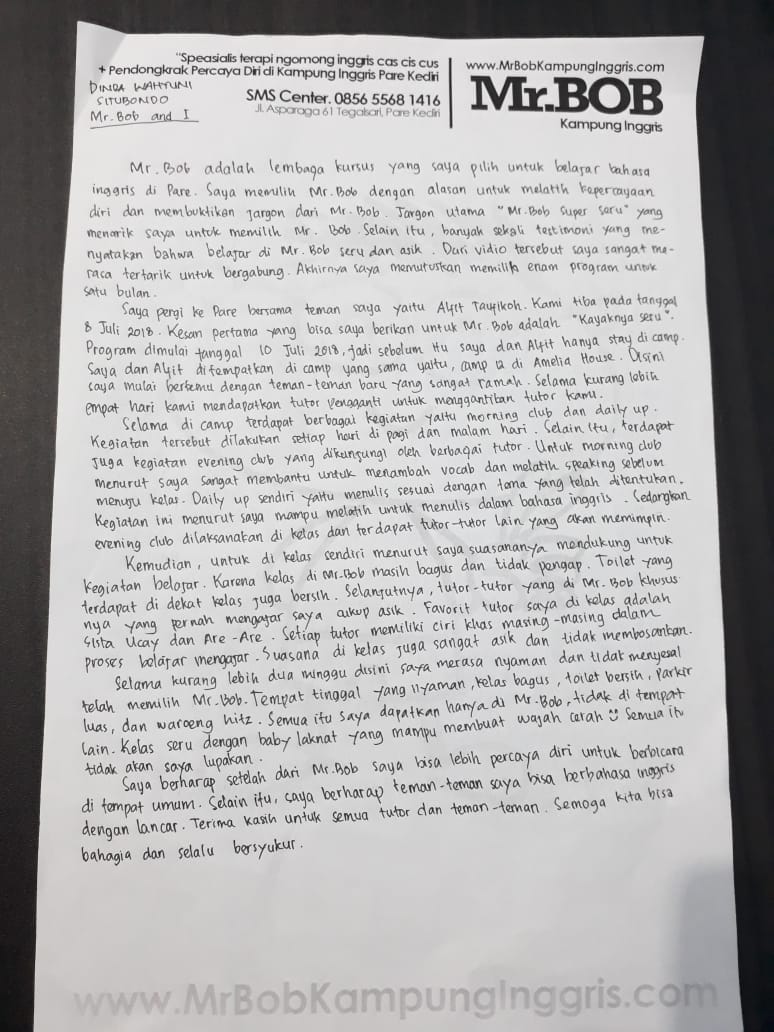 "Speasialis terapi ngomong inggris cas cis cus
+ Pendongkrak Percaya Diri di Kampung Inggris Pare Kediri
DINDA WAHYUNI
SITUBONDO
Mr. Bob and I
SMS Center. 0856 5568 1416
Jl. Asparaga 61 Tegalsari, Pare Kediri
www.MrBobKampungInggris.com
Mr.BOB
Kampung Inggris
Mr. Bob adalah lembaga kursus yang saya pilih untuk belajar bahasa
inggris di Pare. Saya memilih Mr.Bob dengan alasan untuk melatih kepercayaan
diri dan membuktikan jargon dari Mr.Bob. Jargon utama "Mr.Bob super seru" yang
menarik saya untuk memilih Mr. Bob. Selain itu, banyak sekali testimoni yang me-
nyatakan bahwa belajar di Mr. Bob seru dan asik. Dari vidio tersebut saya sangat me-
rasa tertarik untuk bergabung. Akhirnya saya memutuskan memilih enam program untuk
satu bulan.
Saya pergi ke Pare bersama teman saya yaitu Alfit Taufikoh. Kami tiba pada tanggal
8 Juli 2018. Kesan pertama yang bisa saya berikan untuk Mr.Bob adalah "Kayaknya seru".
Program dimulai tanggal 10 Juli 2018, jadi sebelum itu saya dan Alfit hanya stay di camp.
Saya dan Alfit ditempatkan di camp yang sama yaitu, camp 12 di Amelia House. Disini
saya mulai bertemu dengan teman-teman baru yang sangat ramah. Selama kurang lebih
empat hari kami mendapatkan tutor pengganti untuk menggantikan tutor kamu.
Selama di camp terdapat berbagai kegiatan yaitu morning club dan daily up.
Kegiatan tersebut dilakukan setiap hari di pagi dan malam hari. Selain itu, terdapat
juga kegiatan evening club yang dikunjungi oleh berbagai tutor. Untuk morning club
menurut saya sangat membantu untuk menambah vocab dan melatih speaking sebelum
menuju kelas. Daily up sendiri yaitu menulis sesuai dengan tema yang telah ditentukan.
Kegiatan ini menurut saya mampu melatih untuk menulis dalam bahasa inggris. Sedangkan
evening club dilaksanakan di kelas dan terdapat tutor-tutor lain yang akan memimpin.
Kemudian, untuk di kelas sendiri menurut saya suasananya mendukung untuk
kegiatan belajar. Karena kelas di Mr.Bob masih bagus dan tidak pengap. Toilet yang
terdapat di dekat kelas juga bersih. Selanjutnya, tutor-tutor yang di Mr. Bob khusus
nya yang pernah mengajar saya cukup asik. Favorit tutor saya di kelas adalah
Sista Ucay dan Are-Are. Setiap tutor memiliki ciri khas masing-masing dalam
proses belajar mengajar. Suasana di kelas juga sangat asik dan tidak membosankan.
Selama kurang lebih dua minggu disini saya merasa nyaman dan tidak menyesal
telah memilih Mr.Bob. Tempat tinggal yang nyaman, kelas bagus, toilet bersih, parkir
luas, dan waroeng hitz. Semua itu saya dapatkan hanya di Mr.Bob, tidak di tempat
lain. Kelas seru dengan baby laknat yang mampu membuat wajah cerah ☺ Semua itu
tidak akan saya lupakan.
Saya berharap setelah dari Mr.Bob saya bisa lebih percaya diri untuk berbicara
di tempat umum. Selain itu, saya berharap teman-teman saya bisa berbahasa inggris
dengan lancar. Terima kasih untuk semua tutor dan teman-teman. Semoga kita bisa
bahagia dan selalu bersyukur.
www.MrBobKampungInggris.com